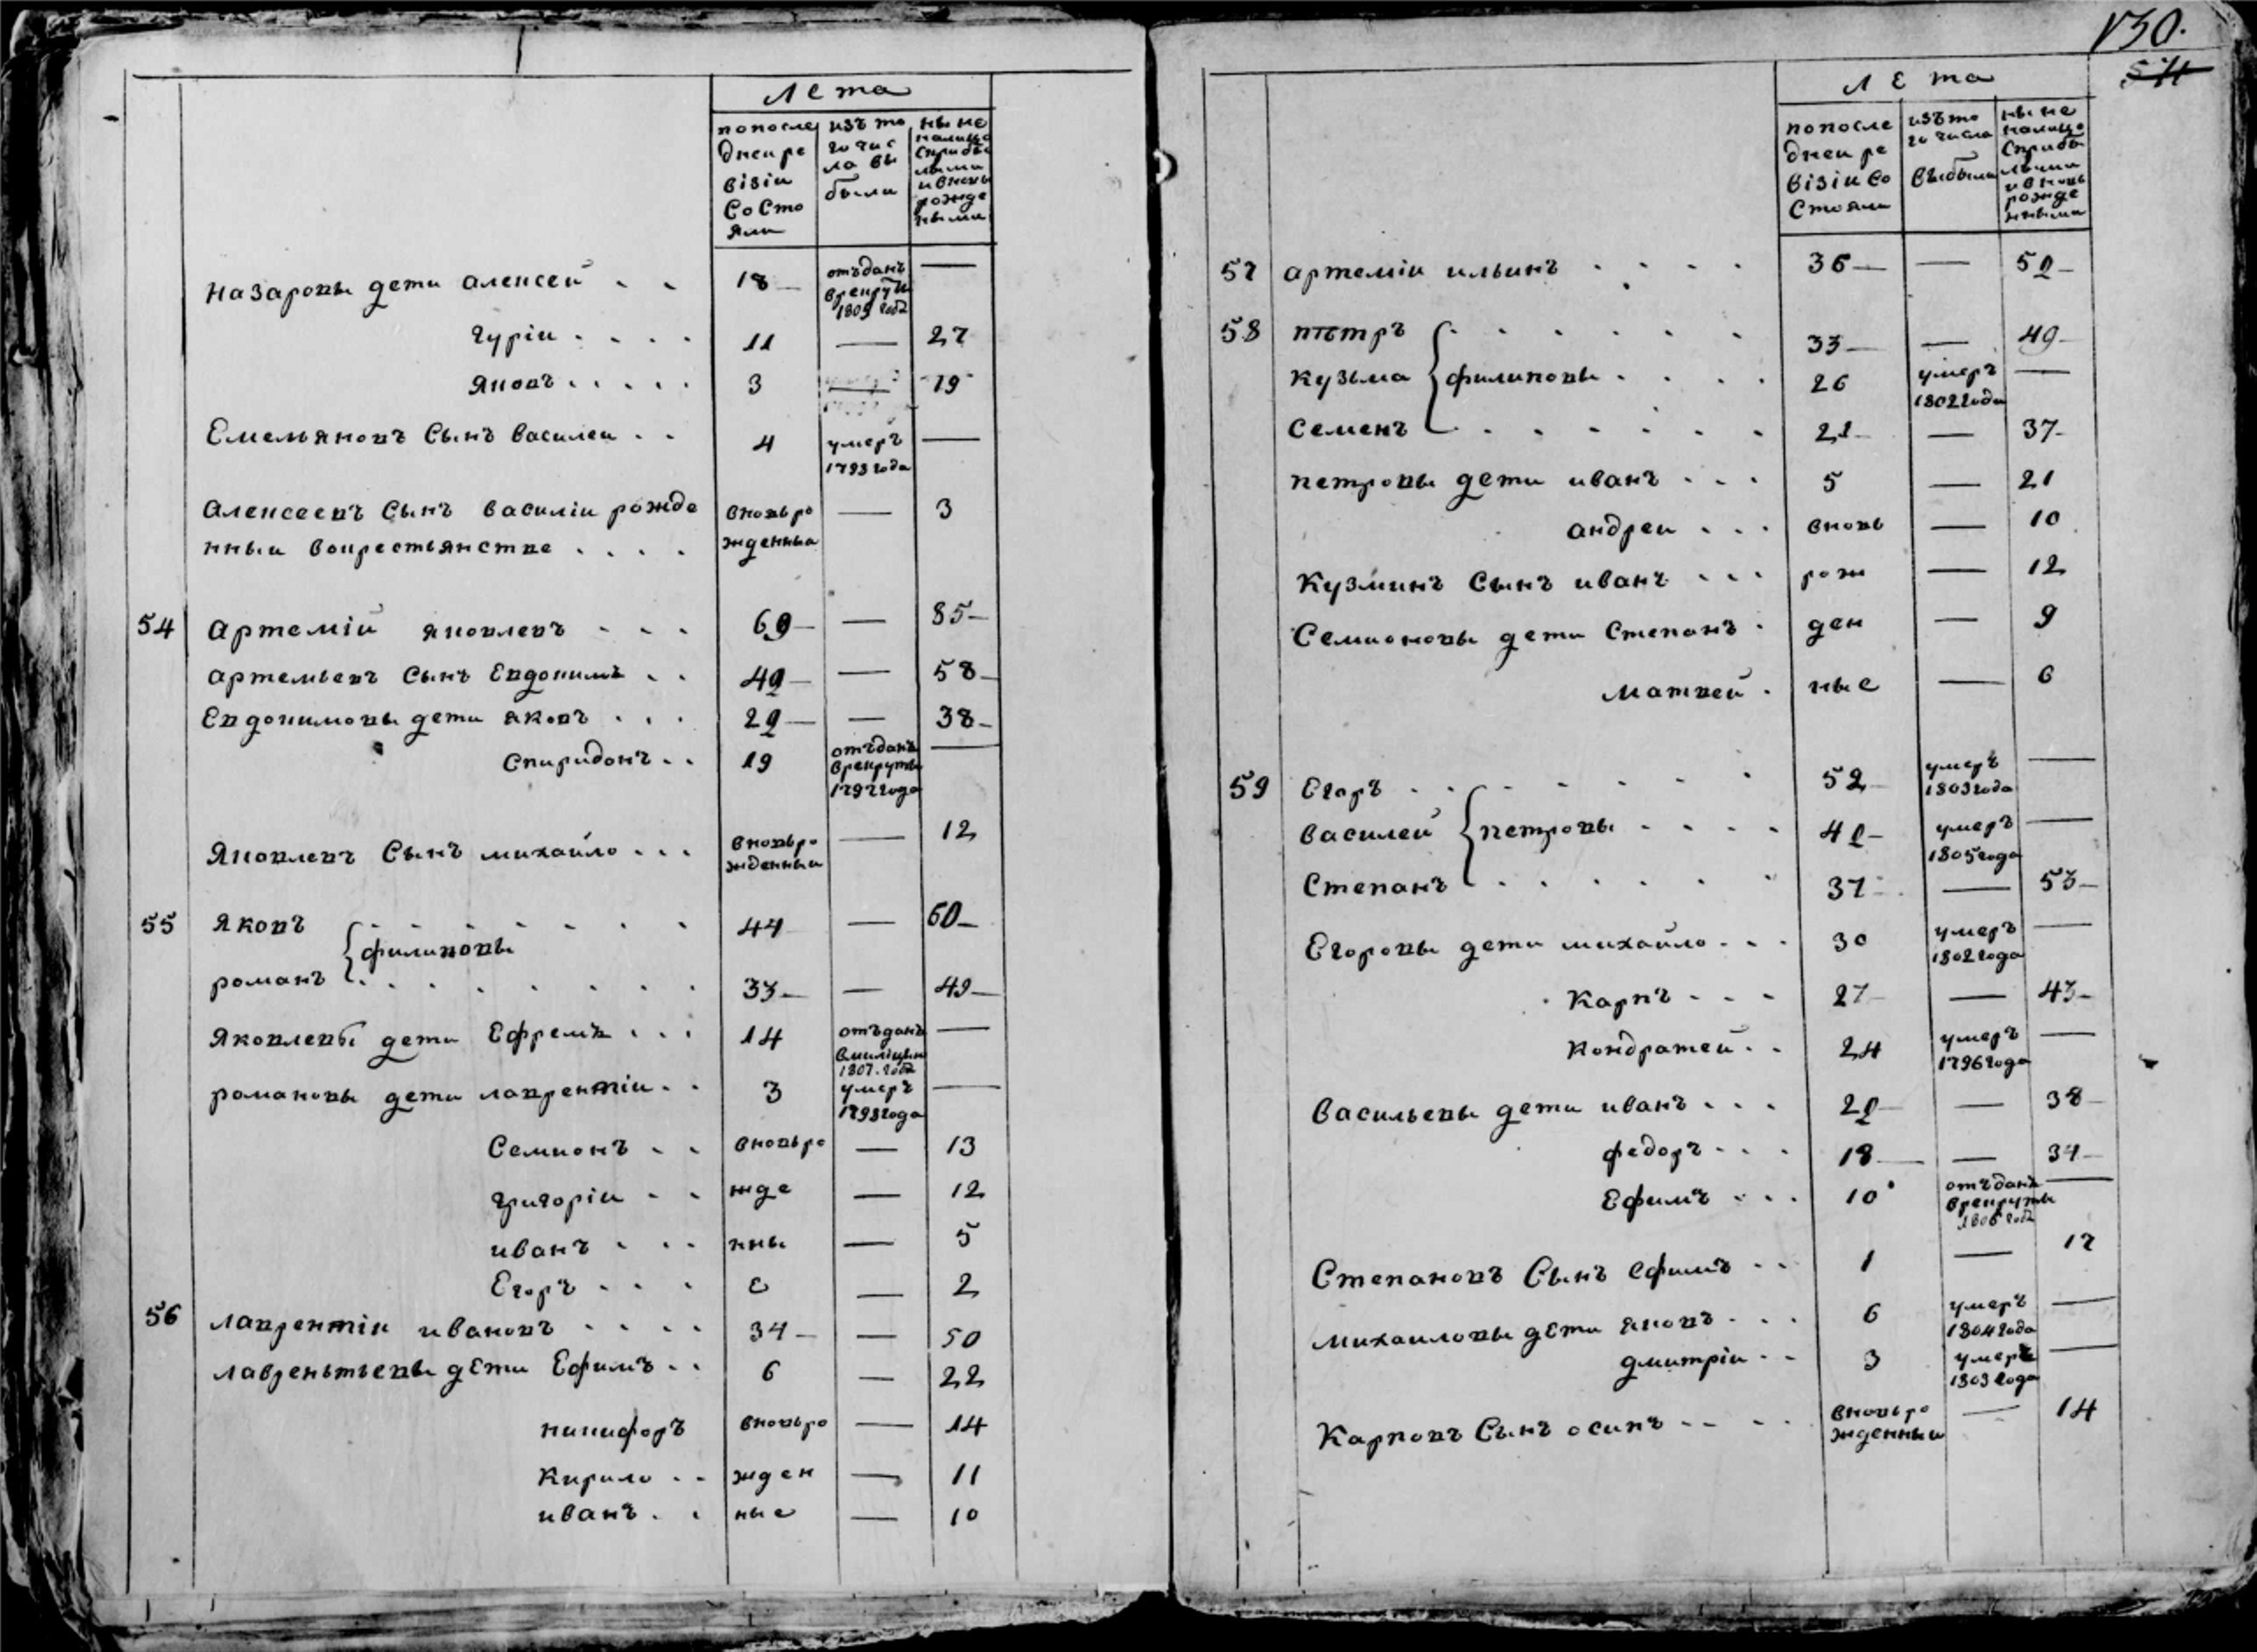 Лета
попосле дней ре візіи состо яли
изъ то го чис ла вы были
ныне налицо Сприбы лыми ивновь рожде ными
Назаровы дети алексей . . 18 отъданъ врекруты 1805 года —
гуріи . . . . 11 — 27
яковъ . . . . . 3 — 19
Емельяновъ Сынъ василеи . . 4 умеръ 1793 года —
алексеевъ Сынъ василіи рожде вновьро — 3
нныи вокрестьянстве . . . . жденныи
54 артемій яковлевъ - - - 69 — 85
артемьевъ сынъ Евдокимъ . . 42 — 58
Евдокимовы дети яковъ . . . 22 — 38
Спиридонъ . . 19 отъданъ врекруты 1797 года —
Яковлевъ Сынъ михайло . . . вновьро жденныи — 12
55 яковъ . . . . . . . 44 — 60
{филиповы
романъ . . . . . . . 33 — 49
яковлевы дети Ефремъ . . . 14 отъданъ вмилицыю 1807. года —
романовы дети лаврентіи . . 3 умеръ 1793 года —
Семионъ . . вновьро — 13
григоріи . . жде — 12
иванъ . . . нны — 5
Егоръ . . . е — 2
56 лаврентіи ивановъ . . . . 34 — 50
лавреньтьевы дети Ефимъ . . 6 — 22
никифоръ вновьро — 14
Кирило . . жден — 11
иванъ . . ные — 10
130.
54
лета
попосле дней ре візіи со стояли
изъ то го числа выбыли
ныне налицо Сприбы лыми ивновь рожде нными
57 артеміи ильинъ . . . . 36 — 52
58 пѣтръ . . . . . . 33 — 49
Кузьма {филиповы . . . . 26 умеръ 1802 года —
Семенъ . . . . . . 21 — 37
петровы дети иванъ . . . 5 — 21
андреи . . . вновь — 10
Кузминъ Сынъ иванъ . . . рож — 12
Семионовы дети Степанъ . ден — 9
матвей . ные — 6
59 Егоръ . . . . . . 52 умеръ 1803 года —
василей {петровы . . . . 42 умеръ 1805 года —
Степанъ . . . . . . 37 — 53
Егоровы дети михайло . . . 30 умеръ 1802 года —
Карпъ - - - 27 — 43
Кондратей . . 24 умеръ 1796 года —
васильевы дети иванъ . . . 22 — 38
федоръ . . . 18 — 34
Ефимъ . . . 10 отъданъ врекруты 1806 года —
Степановъ Сынъ ефимъ . . 1 — 17
михаиловы дети яковъ . . . 6 умеръ 1804 года —
дмитріи . . 3 умеръ 1803 года —
Карповъ Сынъ осипъ - - - - вновьро жденныи — 14